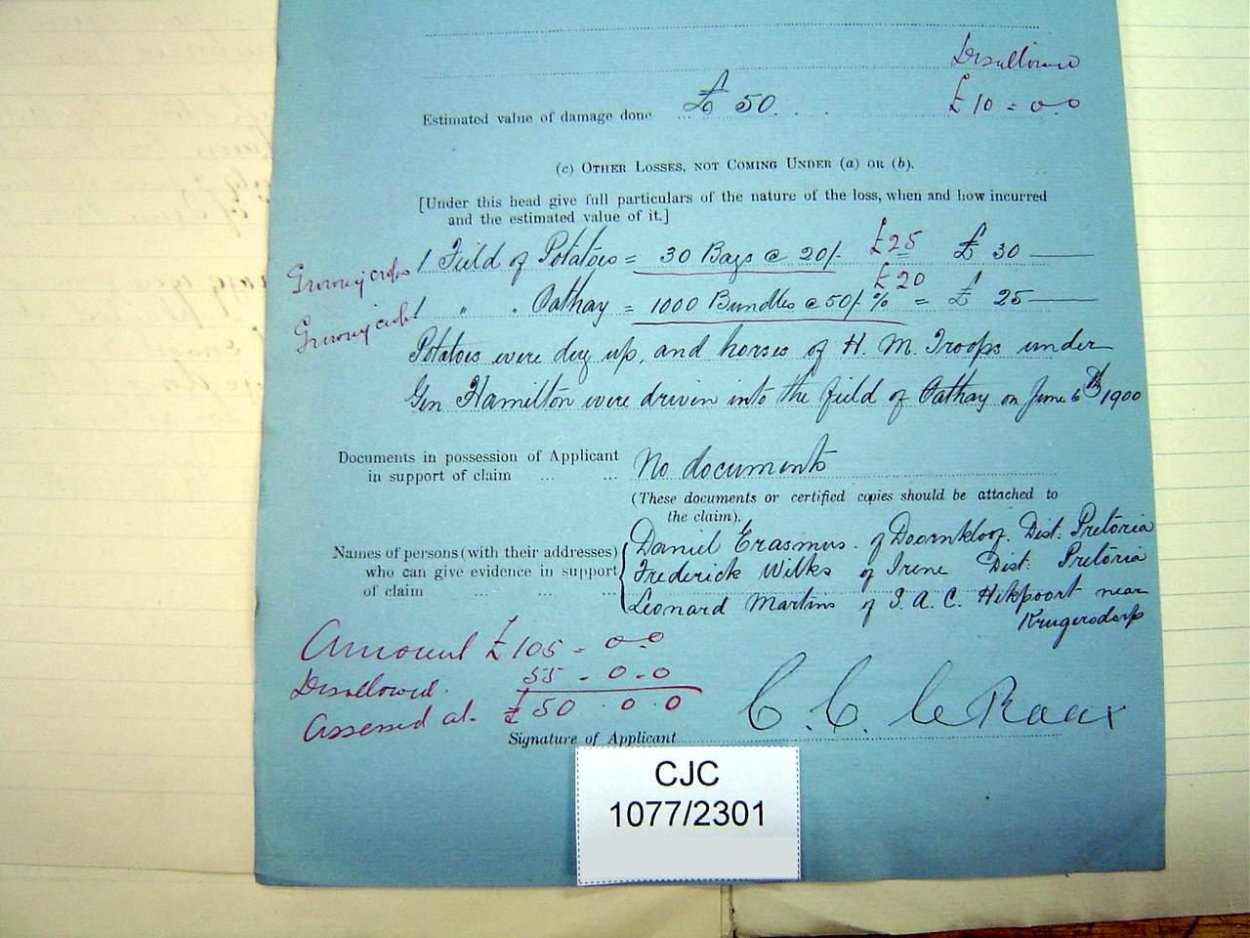 Disallowed
Estimated value of damage done £ 50. . . £10 = 0-0
(c) OTHER LOSSES, NOT COMING UNDER (a) OR (b).
[Under this head give full particulars of the nature of the loss, when and how incurred
and the estimated value of it.]
Growing crops 1 Field of Potatoes = 30 Bags @ 20/- £25 £ 30 —
Growing crops 1 " . Oathay = 1000 Bundles @ 50/- % £20 = £ 25 —
Potatoes were dug up, and horses of H. M. Troops under
Gen Hamilton were driven into the field of Oathay on June 6th 1900
Documents in possession of Applicant
in support of claim ... ... No documents
(These documents or certified copies should be attached to
the claim).
Names of persons (with their addresses)
who can give evidence in support
of claim ... ... ...
Daniel Erasmus. of Doornkloof. Dist. Pretoria
Frederick Wilks of Irene Dist: Pretoria
Leonard Martins of S. A. C. Hekpoort near
Krugersdorp
Amount £105 - 0-0
Disallowed. 55 - 0 - 0
Assessed at. £50 . 0 . 0
C. C. le Roux
Signature of Applicant
CJC
1077/2301